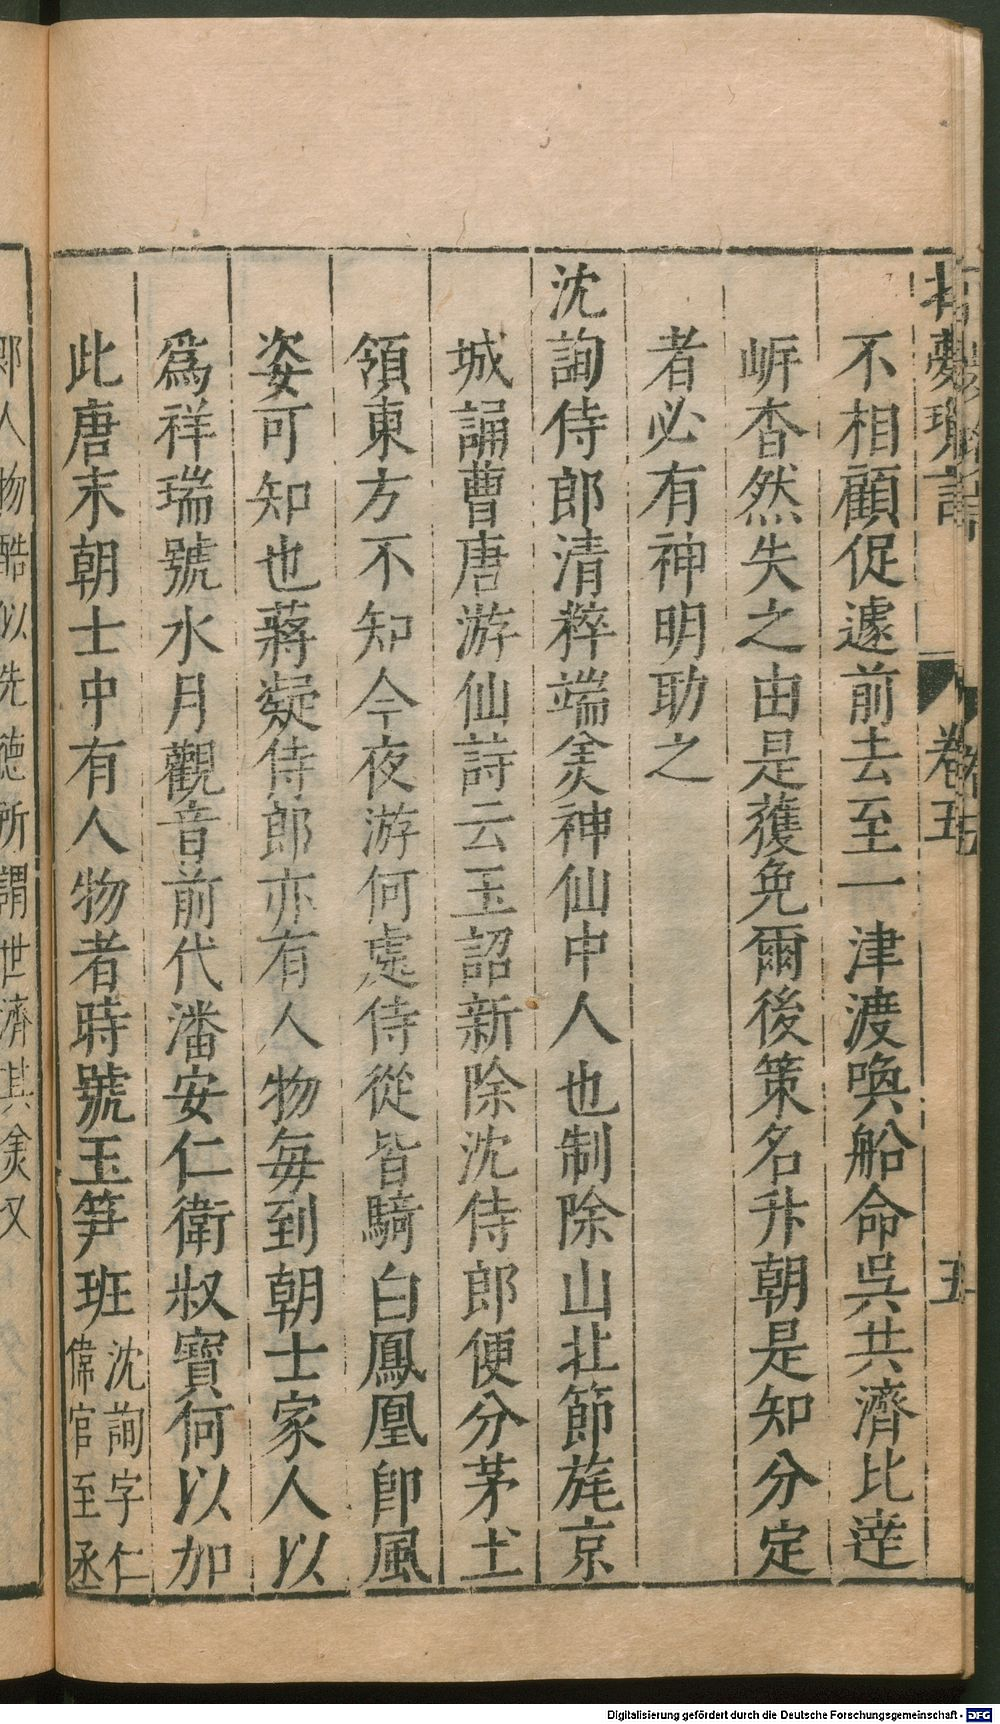 不相顧促遽前去至一津渡喚船命吳共濟比達
㟁杳然失之由是獲免爾後策名升朝是知分定
者必有神明助之
沈詢侍郎清粹端美神仙中人也制除山北節旄京
城誦曹唐游仙詩云玉詔新除沈侍郎便分茅土
領東方不知今夜游何處侍從皆騎白鳳凰卽風
姿可知也蔣凝侍郎亦有人物每到朝士家人以
爲祥瑞號水月觀音前代潘安仁衛叔寶何以加
此唐末朝士中有人物者時號玉筍班沈詢字仁
偉官至丞
郎人物酷似先德所謂世濟其美又
卷五
五
Digitalisierung gefördert durch die Deutsche Forschungsgemeinschaft - DFG